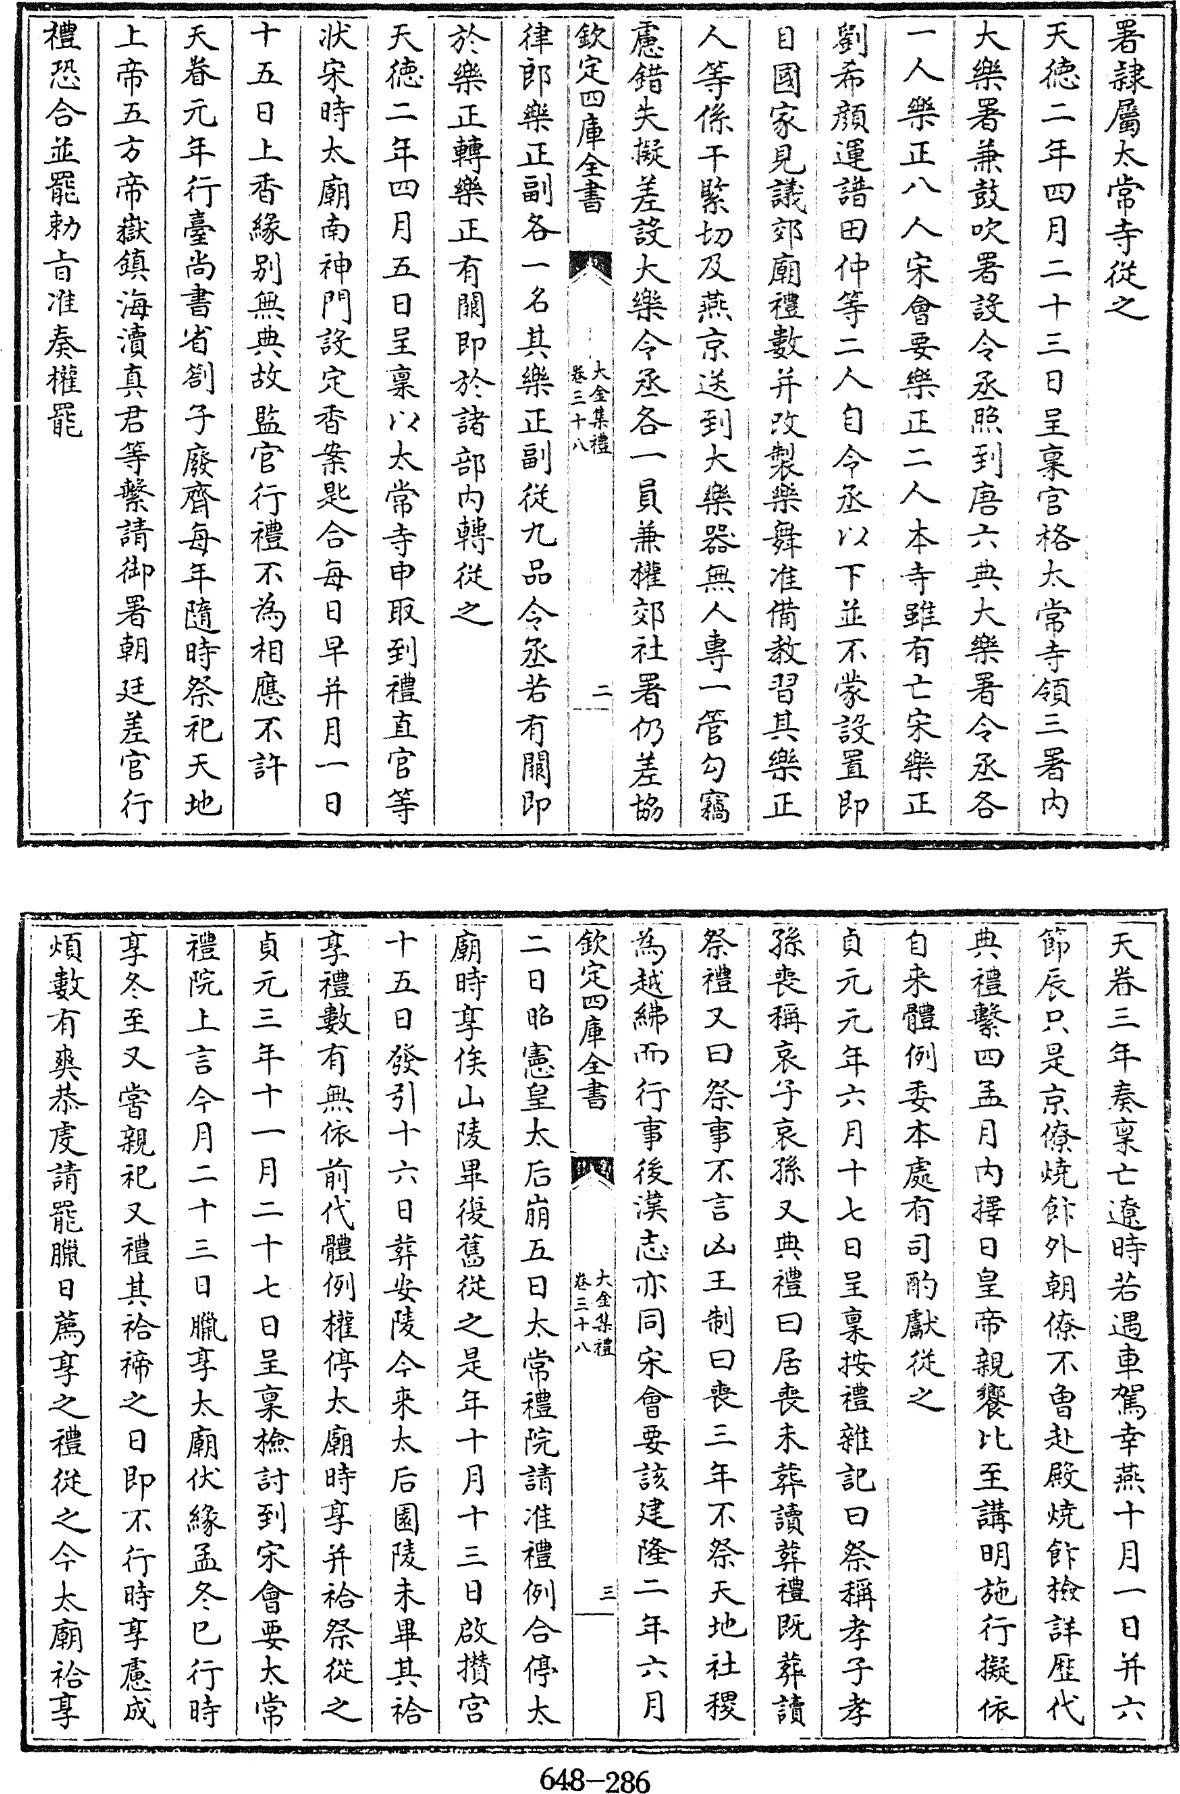 署隷屬太常寺從之
天德二年四月二十三日呈稟官格太常寺領三署内
大樂署兼鼓吹署設令丞照到唐六典大樂署令丞各
一人樂正八人宋會要樂正二人本寺雖有亡宋樂正
劉希顔運譜田仲等二人自令丞以下並不蒙設置即
目國家見議郊廟禮數并改製樂舞准備教習其樂正
人等係干緊切及燕京送到大樂器無人專一管勾竊
慮錯失擬差設大樂令丞各一員兼權郊社署仍差協
欽定四庫全書
大金集禮
卷三十八
二
律郎樂正副各一名其樂正副從九品令丞若有闕即
於樂正轉樂正有闕即於諸部内轉從之
天德二年四月五日呈稟以太常寺申取到禮直官等
狀宋時太廟南神門設定香案匙合每日早并月一日
十五日上香緣别無典故監官行禮不為相應不許
天眷元年行臺尚書省劄子廢齊每年隨時祭祀天地
上帝五方帝嶽鎮海瀆真君等繫請御署朝廷差官行
禮恐合並罷勅旨准奏權罷
天眷三年奏稟亡遼時若遇車駕幸燕十月一日并六
節辰只是京僚燒飰外朝僚不曽赴殿燒飰檢詳歴代
典禮繫四孟月内擇日皇帝親饗比至講明施行擬依
自来體例委本處有司酌獻從之
貞元元年六月十七日呈稟按禮雜記曰祭稱孝子孝
孫喪稱哀子哀孫又典禮曰居喪未葬讀葬禮既葬讀
祭禮又曰祭事不言凶王制曰喪三年不祭天地社稷
為越紼而行事後漢志亦同宋會要該建隆二年六月
欽定四庫全書
大金集禮
卷三十八
三
二日昭憲皇太后崩五日太常禮院請准禮例合停太
廟時享俟山陵畢復舊從之是年十月十三日啟攢宮
十五日發引十六日葬安陵今来太后園陵未畢其祫
享禮數有無依前代體例權停太廟時享并祫祭從之
貞元三年十一月二十七日呈稟檢討到宋會要太常
禮院上言今月二十三日臘享太廟伏緣孟冬已行時
享冬至又嘗親祀又禮其祫禘之日即不行時享慮成
煩數有爽恭虔請罷臘日薦享之禮從之今太廟祫享
648-286